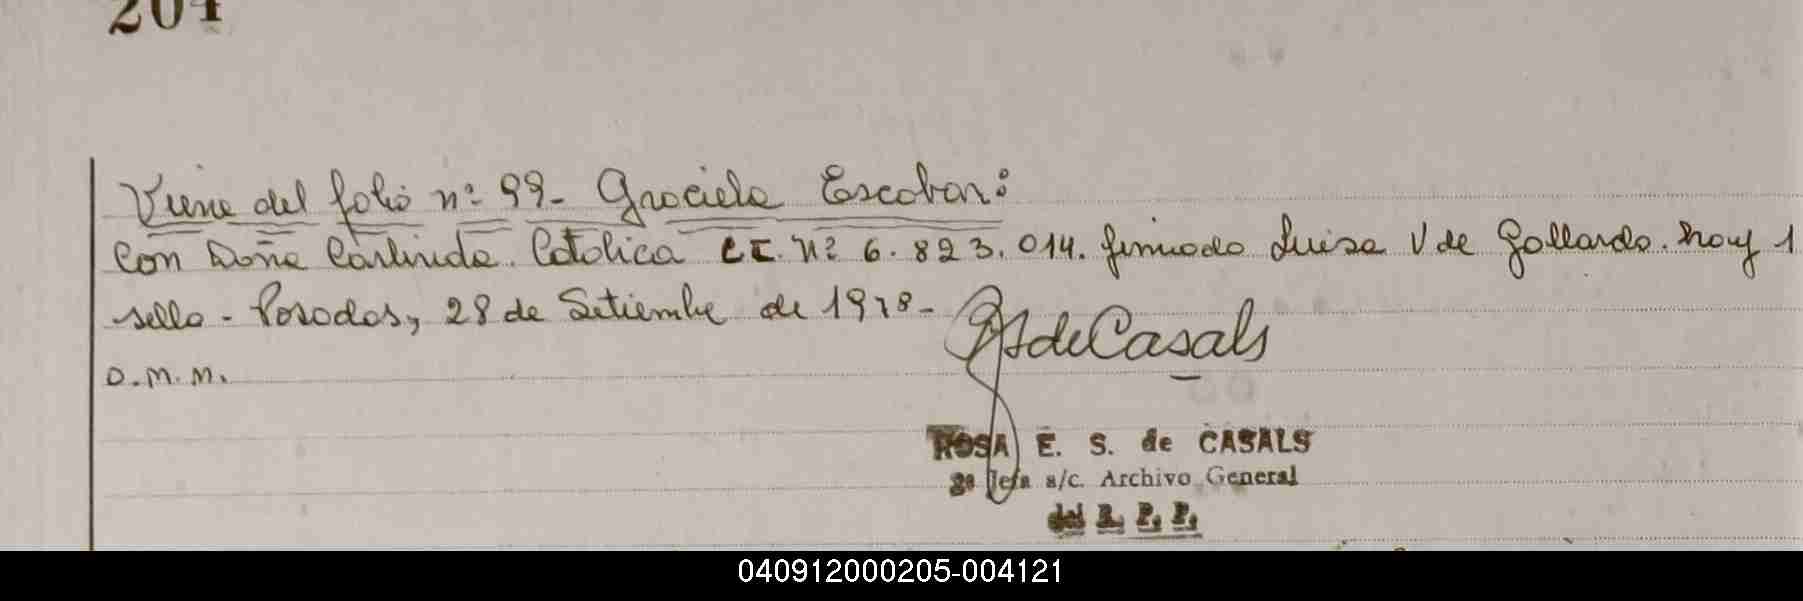 204
Viene del folio nº 99- Graciela Escobar:
con Doña Carlinda. Catolica L.C. Nº 6.823.014. firmado Luisa V de Gallardo. hay 1
sello - Posadas, 28 de Setiembre de 1978-
deCasals
O.M.M.
ROSA E. S. de CASALS
2ª Jefa a/c. Archivo General
del R. P. P.
040912000205-004121